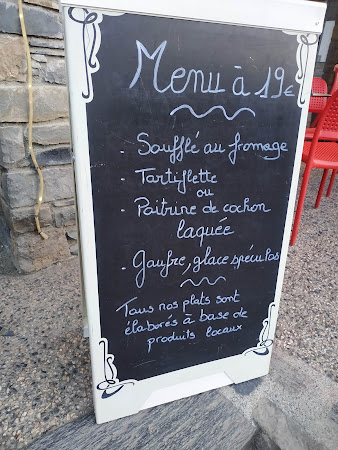 Menu à 19€
- Soufflé au fromage
- Tartiflette
ou
- Poitrine de cochon
laquée
- Gaufre, glace spéculos
Tous nos plats sont
élaborés à base de
produits locaux